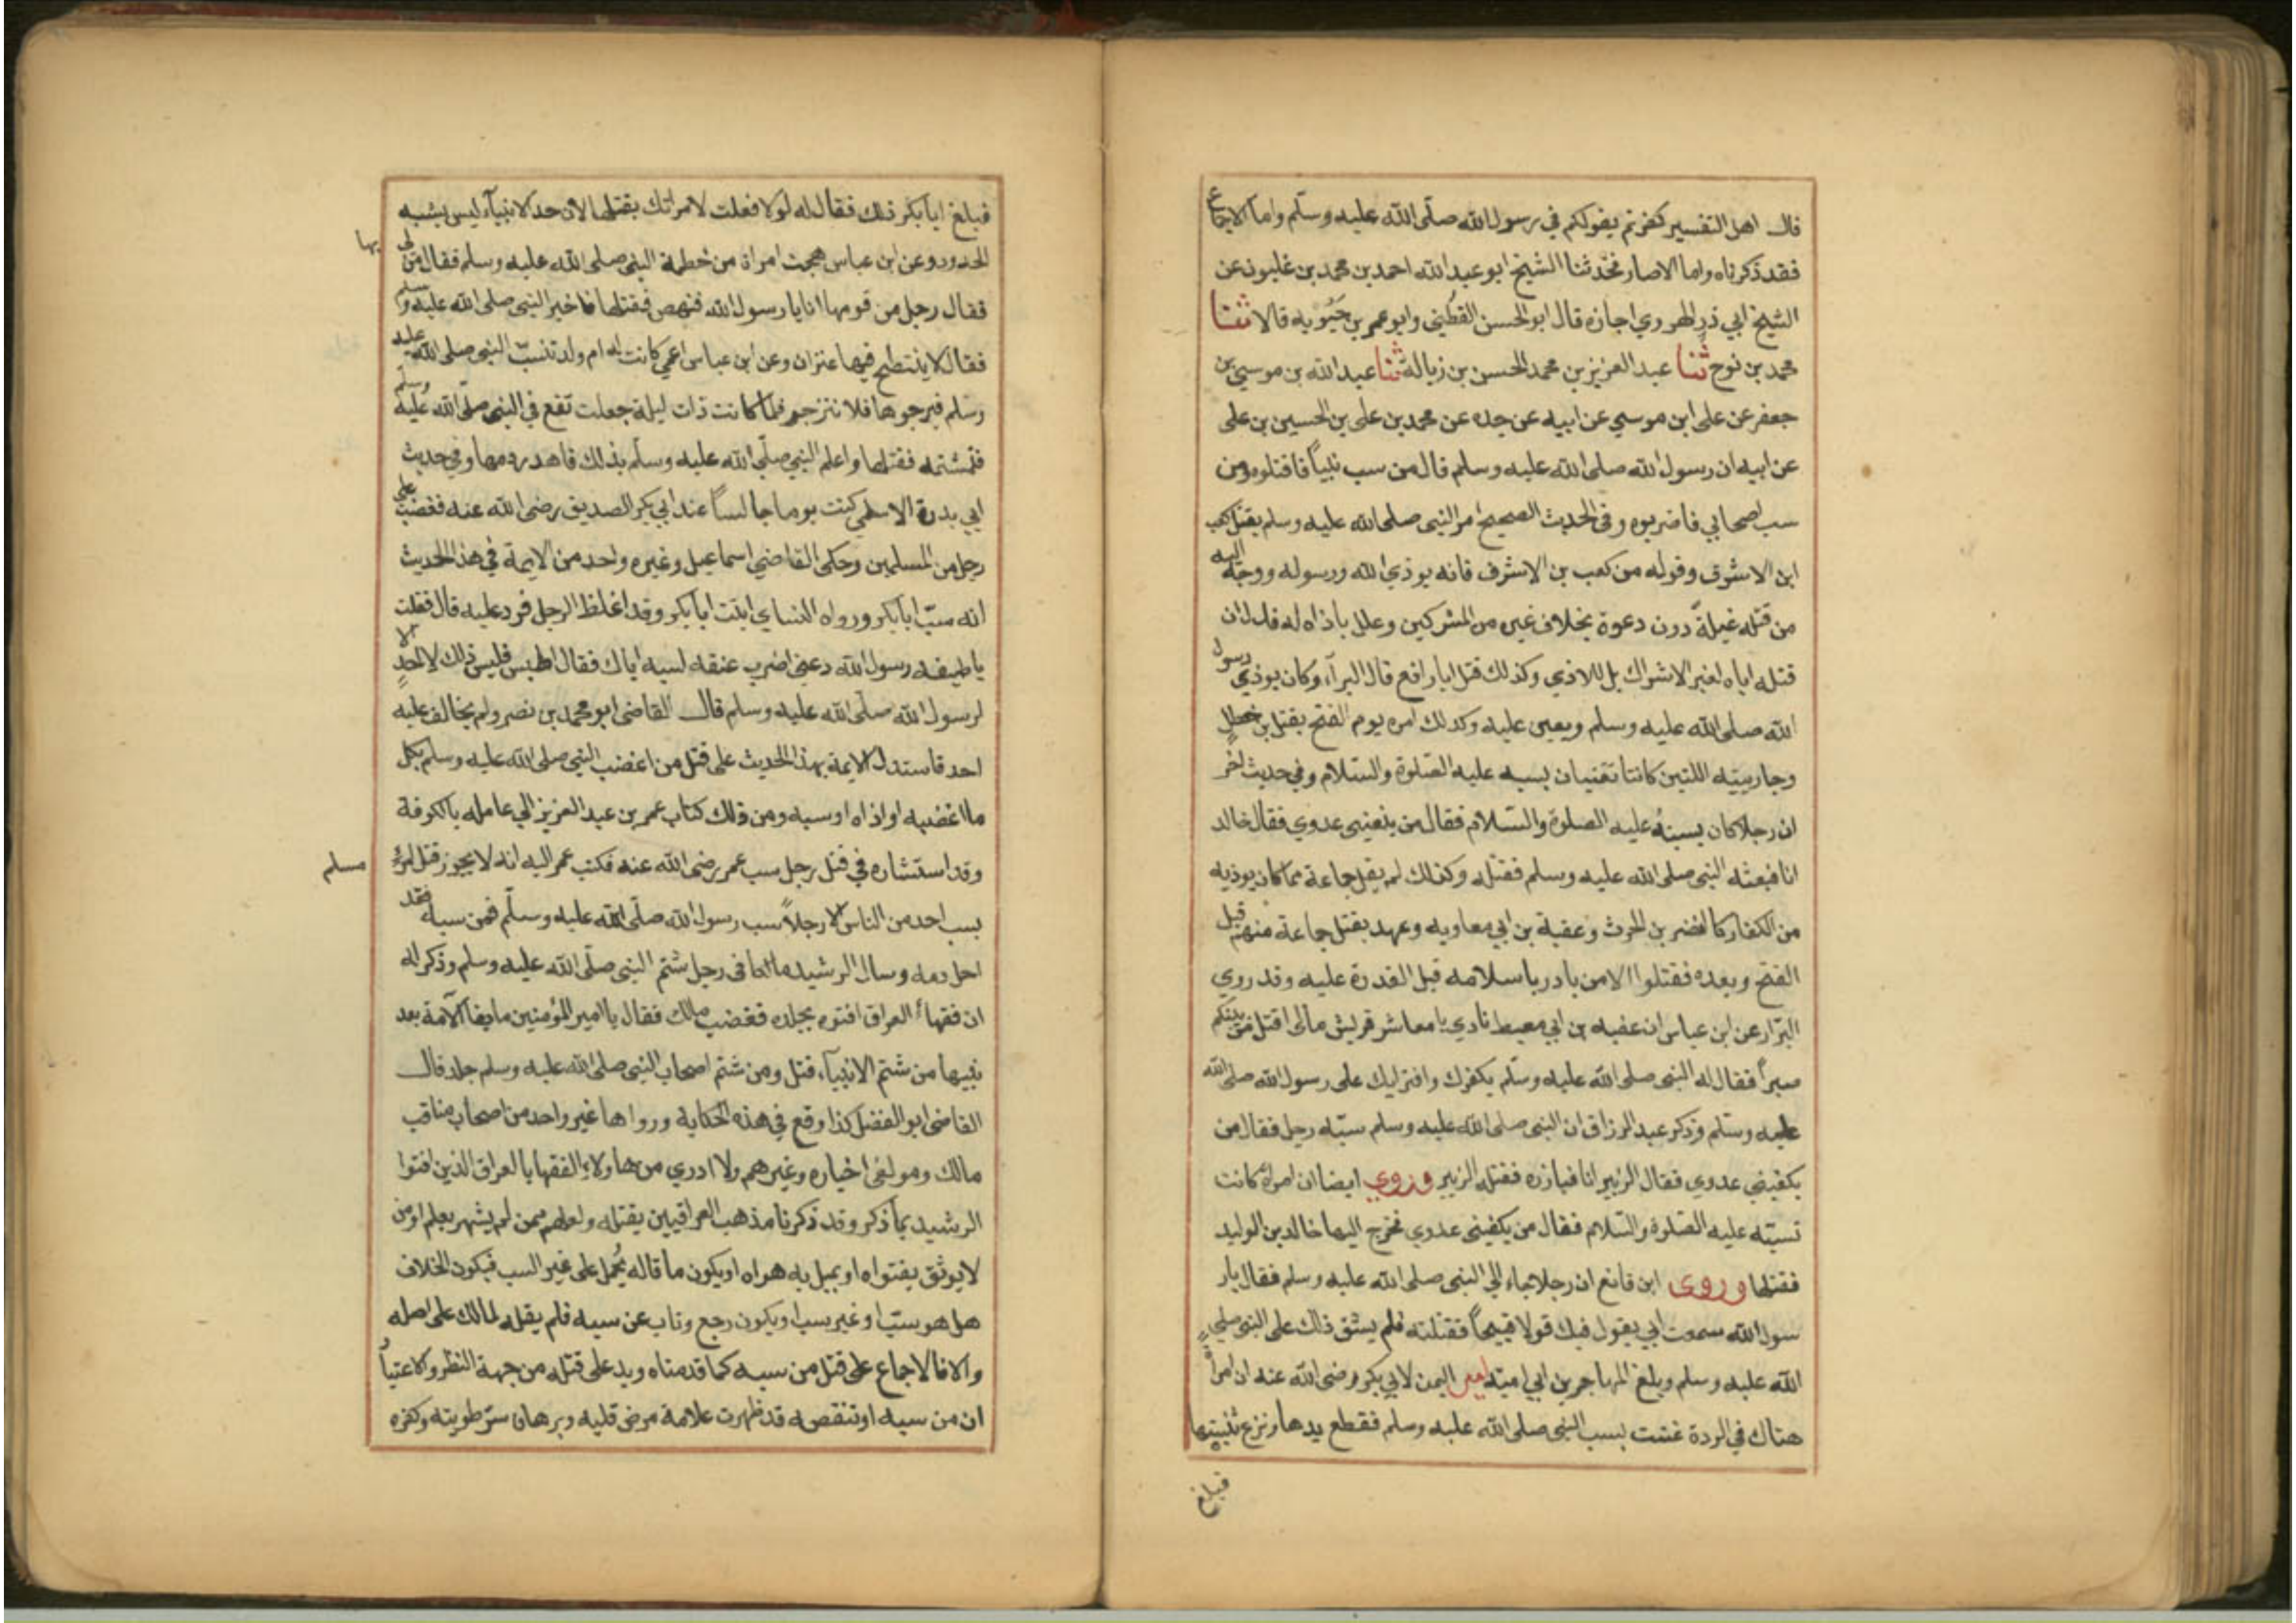 قال اهل التفسير كفرتم بقولكم في رسول الله صلّى الله عليه وسلّم واما الاجماع
فقد ذكرناه واما الاصار فحدثنا الشيخ ابو عبد الله احمد بن محمد بن غلبون عن
الشيخ ابي ذر الهروي اجازه قال ابو الحسن القطني وابو عمر بن حَيُّويه قالا ثنا
محمد بن نوح ثنا عبد العزيز بن محمد الحسن بن زبالة ثنا عبد الله بن موسي بن
جعفر عن على ابن موسي عن ابيه عن جده عن محمد بن على بن الحسين بن على
عن ابيه ان رسول الله صلى الله عليه وسلم قال من سب نبياً فاقتلوه ومن
سب اصحابي فاضربوه وفى الحديث الصحيح امر النبى صلى الله عليه وسلم بقتل كعب
ابن الاشرف وقوله من كعب بن الاشرف فانه يوذي الله ورسوله ووجه اليه
من قتله غيلةً دون دعوة بخلاف غيره من المشركين وعلل باذاه له فدل ان
قتله اياه لغير الاشراك بل للاذي وكذلك قتل ابا رافع قال البرآء وكان يوذي رسول
الله صلى الله عليه وسلم ويعين عليه وكذلك امره يوم الفتح بقتل بن خطلٍ
وجاريتيه اللتين كانتا تغنيان بسبه عليه الصلوة والسلام وفي حديث اخر
ان رجلا كان يسبّه عليه الصلوة والسلام فقال من يكفينى عدوي فقال خالد
انا فبعثه النبى صلى الله عليه وسلم فقتله وكذلك لم يقل جماعة مما كان يوذيه
من الكفار كالنضر بن الحرث وعقبة بن ابي معاويه وعهد بقتل جماعة منهم قبل
الفتح وبعده فقتلوا الا من بادر باسلامه قبل القدرة عليه وقد روي
البزّار عن ابن عباس ان عقبه بن ابي معيط نادي يا معاشر قريش مالى اقتل من بينكم
صبراً فقال له النبى صلى الله عليه وسلّم بكفرك وافترايك على رسول الله صلى الله
عليه وسلّم وذكر عبد الرزاق ان النبى صلى الله عليه وسلم سبّه رجل فقال من
يكفيني عدوي فقال الزبير انا فبارزه فقتله الزبير وروي ايضا ان امراة كانت
تسبّه عليه الصلوة والسّلام فقال من يكفينى عدوي فخرج اليها خالد بن الوليد
فقتلها وروى ابن قانع ان رجلا جاء الي النبى صلى الله عليه وسلم فقال يار
سول الله سمعت ابي يقول فيك قولا قبيحاً فقتلته فلم يشق ذلك على النبى صلى
الله عليه وسلم وبلغ المهاجر بن ابي اميّة امير اليمن لابي بكر رضى الله عنه ان امراةٍ
هناك في الردة غنت بسب النبى صلى الله عليه وسلم فقطع يدها ونزع ثنيتها
فبلغ
فبلغ ابا بكر ذلك فقال له لولا فعلت لامراتك بقتلها لان حد الانبيآء ليس يشبه
الحدود وعن ابن عباس هجت امراة من خطمة النبى صلى الله عليه وسلم فقال من لى
بها
فقال رجل من قومها انا يا رسول الله فنهض فقتلها فاخبر النبى صلى الله عليه وسلم
فقال لا ينتطح فيها عنزان وعن ابن عباس اعمى كانت له ام ولد تسبّ النبى صلى الله عليه
وسلم فيرجوها فلا تنزجر فلما كانت ذات ليلة جعلت تقع في النبى صلّى الله عليه وسلم
فتشتمه فقتلها واعلم النبي صلّى الله عليه وسلّم بذلك فاهدر دمها وفي حديث
ابي بدرة الاسلمي كنت يوما جالساً عند ابي بكر الصديق رضى الله عنه فغضب على
رجل من المسلمين وحكى القاضي اسماعيل وغيره واحد من الايمة في هذا الحديث
انه سبّ ابا بكر ورواه النساي اتيت ابا بكر وقد اغلظ الرجل فرد عليه قال فقلت
يا خليفه رسول الله دعنى اضرب عنقه لسبه اياك فقال اجلس فليس ذلك لاحدٍ الا
لرسول الله صلّى الله عليه وسلم قال القاضى ابو محمد بن نصر ولم يخالف عليه
احد فاستدل الايمة بهذا الحديث على قتل من اغضب النبى صلى الله عليه وسلم بكل
ما اغضبه او اذاه او سبه ومن ذلك كتاب عمر بن عبد العزيز الي عامله بالكوفة
وقد استشاره في قتل رجل سب عمر رضى الله عنه فكتب عمر اليه انه لا يجوز قتل امرئ
مسلم
بسب احد من الناس الا رجلاً سب رسول الله صلّى الله عليه وسلّم فمن سبه فقد
احل دمه وسال الرشيد مالكا فى رجل شتم النبى صلّى الله عليه وسلم وذكر له
ان فقهاء العراق افتوه بجلده فغضب مالك فقال يا امير المؤمنين ما بقا الآمة بعد
نبيها من شتم الانبيآء قتل ومن شتم اصحاب النبى صلى الله عليه وسلم جلد قال
القاضى ابو الفضل كذا وقع في هذه الحكاية ورواها غير واحد من اصحاب مناقب
مالك ومولفى اخباره وغيرهم ولا ادري من هاولاء الفقها بالعراق الذين افتوا
الرشيد بما ذكر وقد ذكرنا مذهب العراقيين بقتله ولعلهم ممن لم يشهر بعلم او من
لا يوثق بفتواه او يميل به هواه او يكون ما قاله يُحمل على غير السب فيكون الخلاف
هل هو سبّ او غير سب او يكون رجع وتاب عن سبه فلم يقله لمالك على اصله
والا فالاجماع على قتل من سبه كما قدمناه ويد على قتله من جهة النظر والاعتبار
ان من سبه او تنقصه قد ظهرت علامة مرض قلبه وبرهان سرّ طويته وكفره